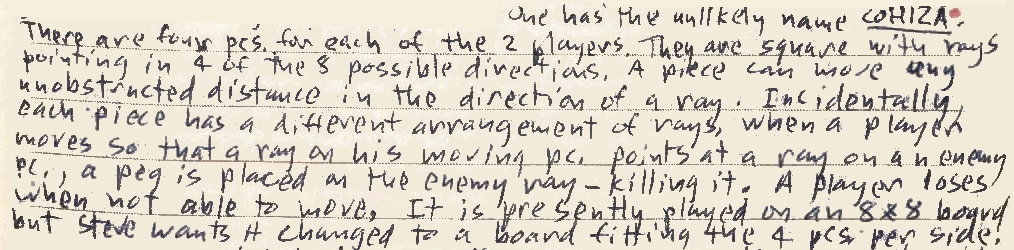 One has the unlikely name COHIZA.
There are four pcs. for each of the 2 players. They are square with rays
pointing in 4 of the 8 possible directions. A piece can move any
unobstructed distance in the direction of a ray. Incidentally,
each piece has a different arrangement of rays, when a player
moves so that a ray on his moving pc. points at a ray on an enemy
pc., a peg is placed on the enemy ray – killing it. A player loses
when not able to move. It is presently played on an 8x8 board
but Steve wants it changed to a board fitting the 4 pcs per side.